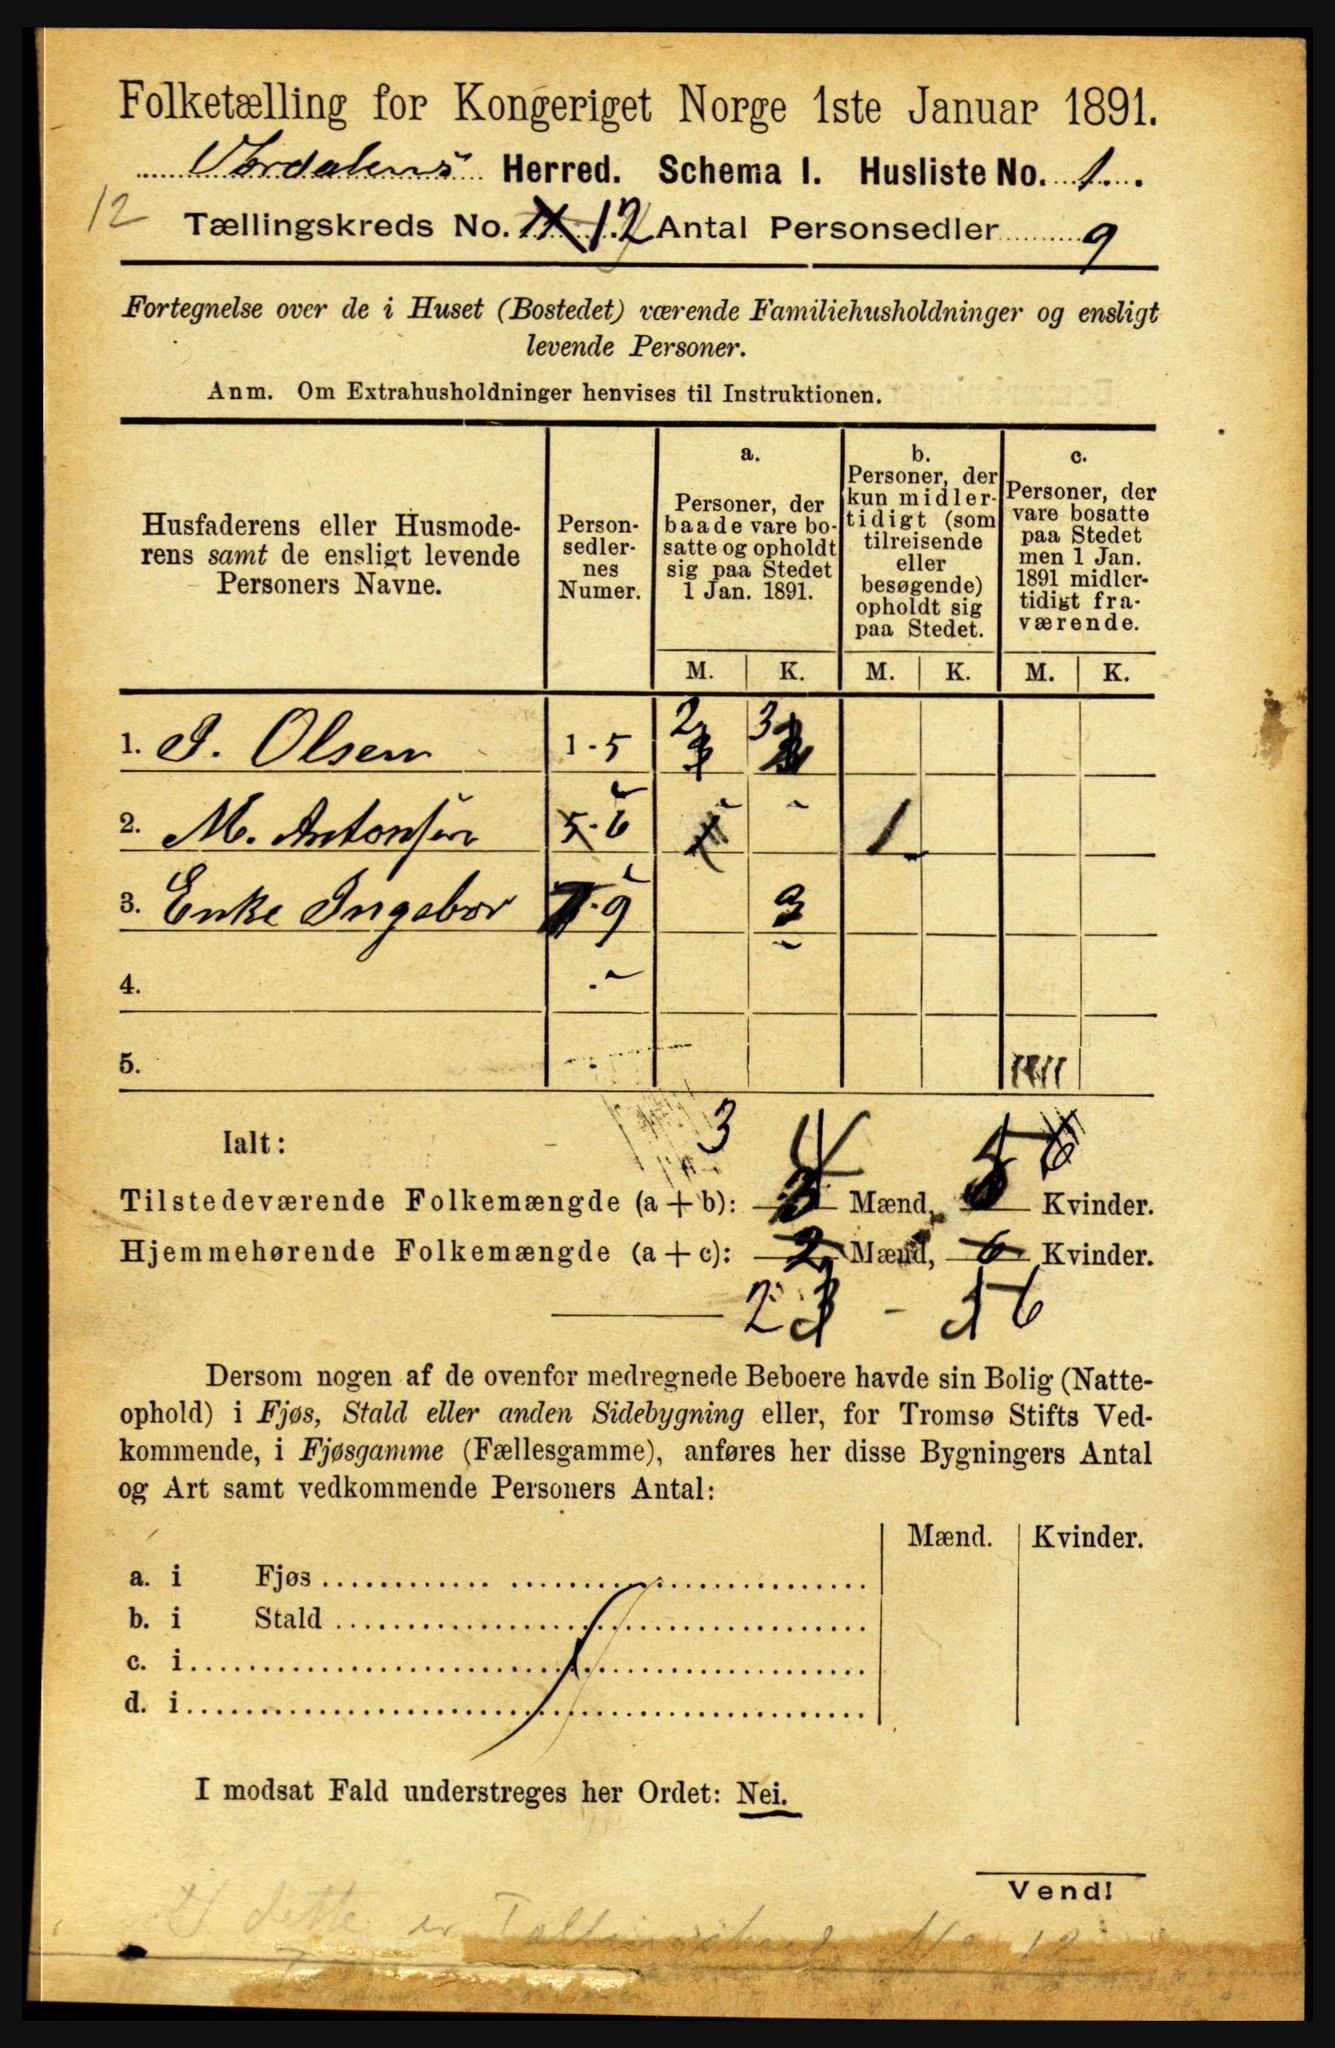 Folketælling for Kongeriget Norge 1ste Januar 1891.
Herred. Schema I. Husliste No. 1.
12
Tællingskreds No. 12 Antal Personsedler 9
Fortegnelse over de i Huset (Bostedet) værende Familiehusholdninger og ensligt
levende Personer.
Anm. Om Extrahusholdninger henvises til Instruktionen.
Husfaderens eller Husmode-
rens samt de ensligt levende
Personers Navne.
Person-
sedler-
nes
Numer.
a.
Personer, der
baade vare bo-
satte og opholdt
sig paa Stedet
1 Jan. 1891.
b.
Personer, der
kun midler-
tidigt (som
tilreisende
eller
besøgende)
opholdt sig
paa Stedet.
c.
Personer, der
vare bosatte
paa Stedet
men 1 Jan.
1891 midler-
tidigt fra-
værende.
M. K. M. K. M. K.
1. J. Olsen 1-5 2 3
2. M. Antonsen 5-6 1 1
3. Enke Ingebor 7-9 3
4. -
5. -
Ialt:
3 4 5 6
Tilstedeværende Folkemængde (a+b): Mænd, Kvinder.
Hjemmehørende Folkemængde (a+c): 2 Mænd, 6 Kvinder.
2 - 6
Dersom nogen af de ovenfor medregnede Beboere havde sin Bolig (Natte-
ophold) i Fjøs, Stald eller anden Sidebygning eller, for Tromsø Stifts Ved-
kommende, i Fjøsgamme (Fællesgamme), anføres her disse Bygningers Antal
og Art samt vedkommende Personers Antal:
Mænd. Kvinder.
a. i Fjøs
b. i Stald
c. i
d. i
I modsat Fald understreges her Ordet: Nei.
Vend!
I dette er No 12